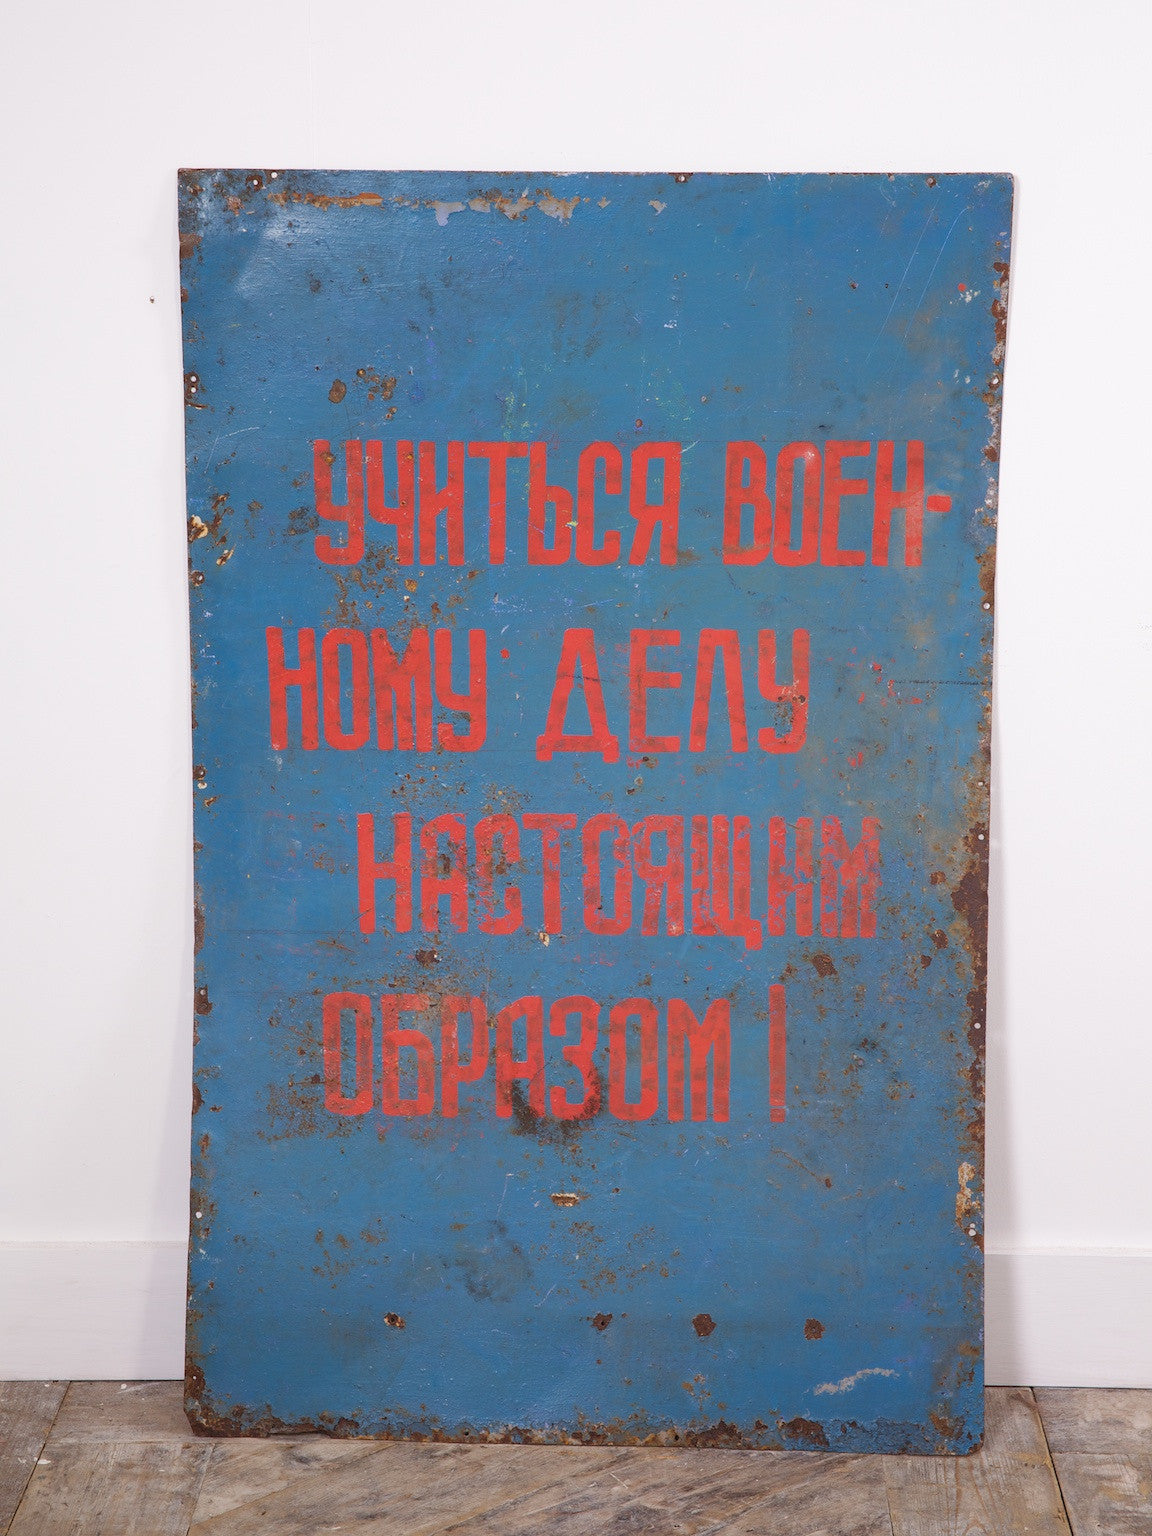 УЧИТЬСЯ ВОЕН-
НОМУ ДЕЛУ
НАСТОЯЩИМ
ОБРАЗОМ!